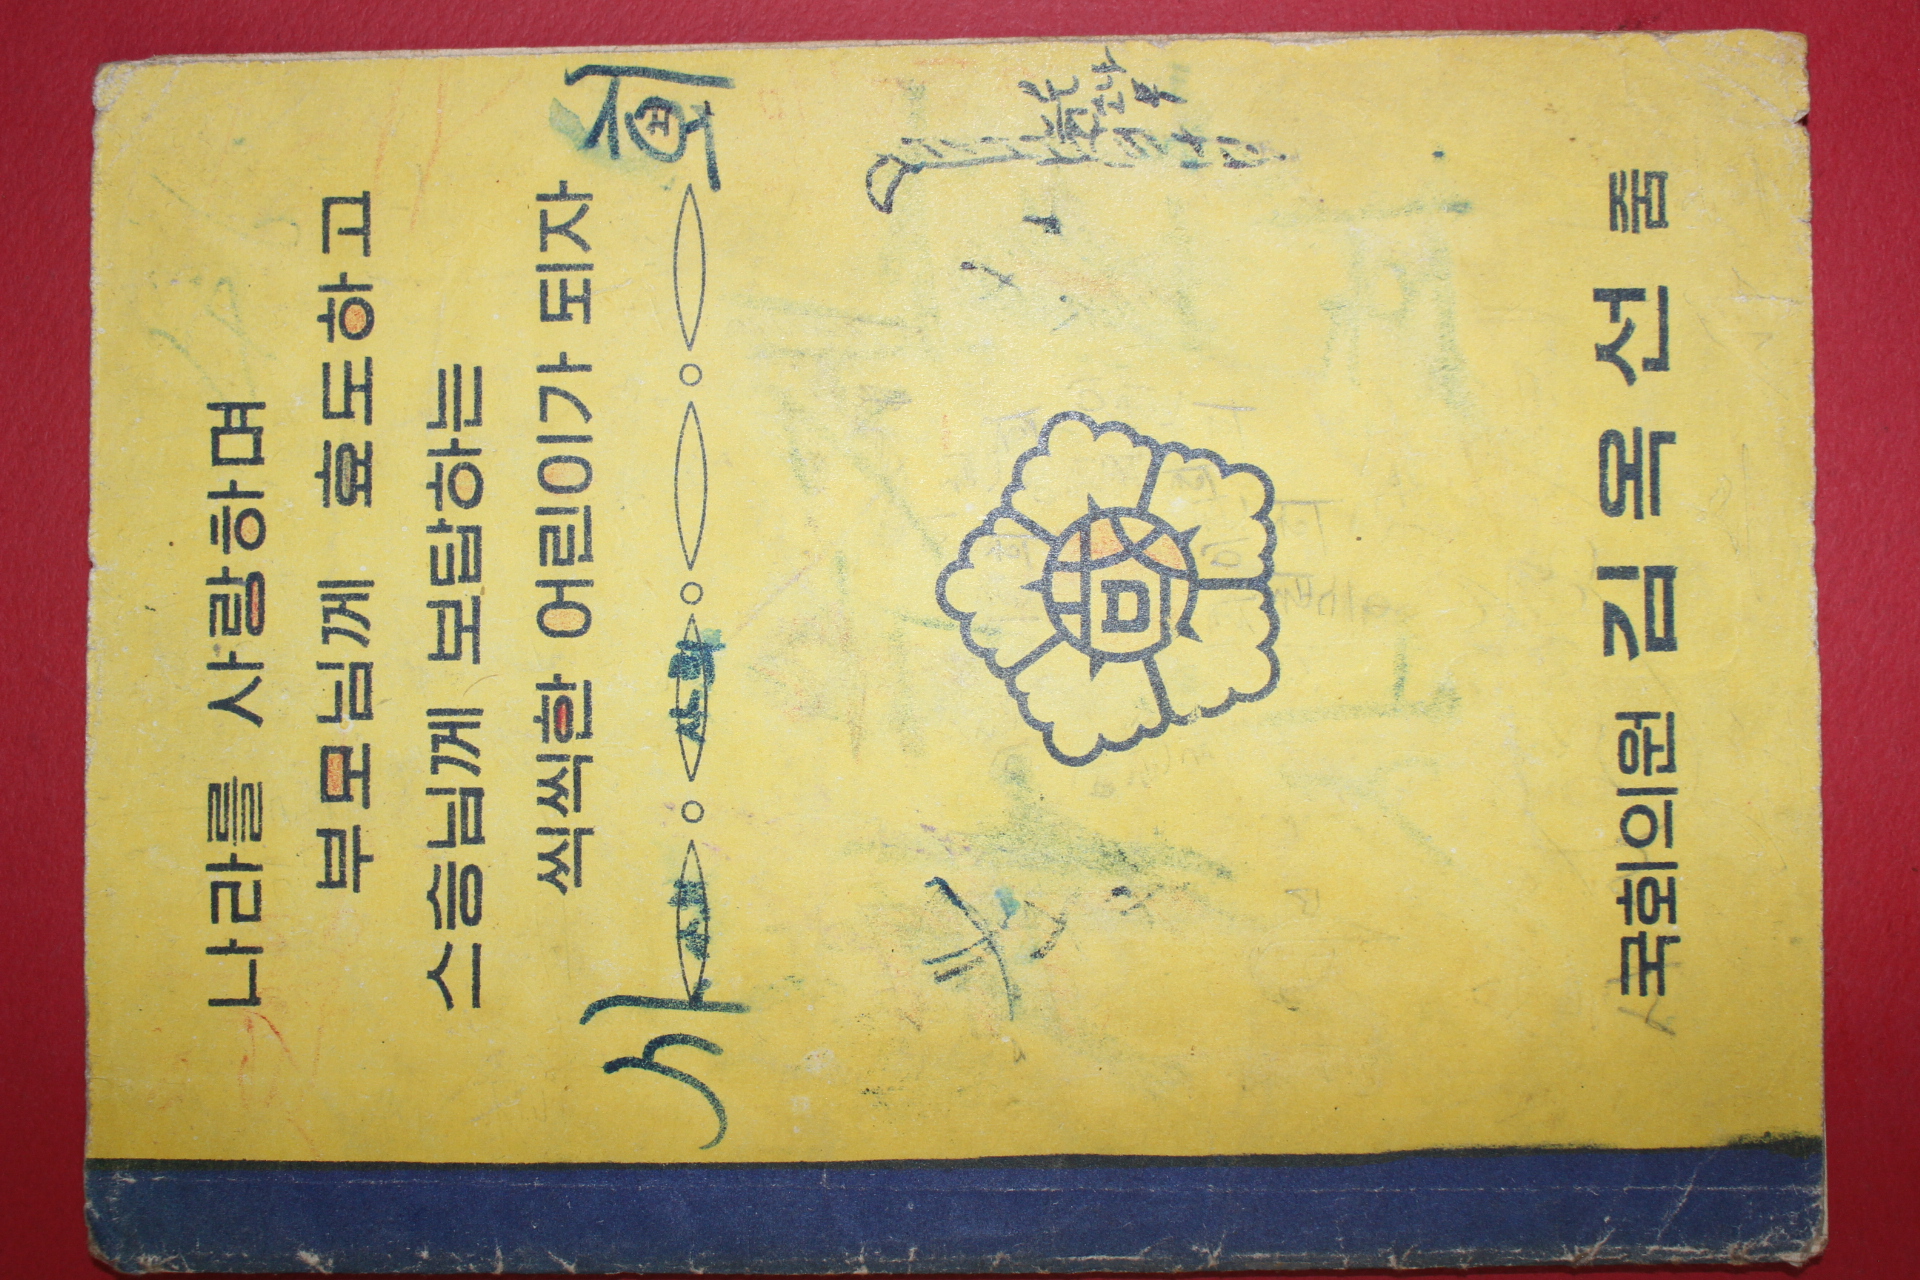 나라를 사랑하며
부모님께 효도하고
스승님께 보탑하는
씩씩한 어린이가 되자
국회의원 김옥선 줌